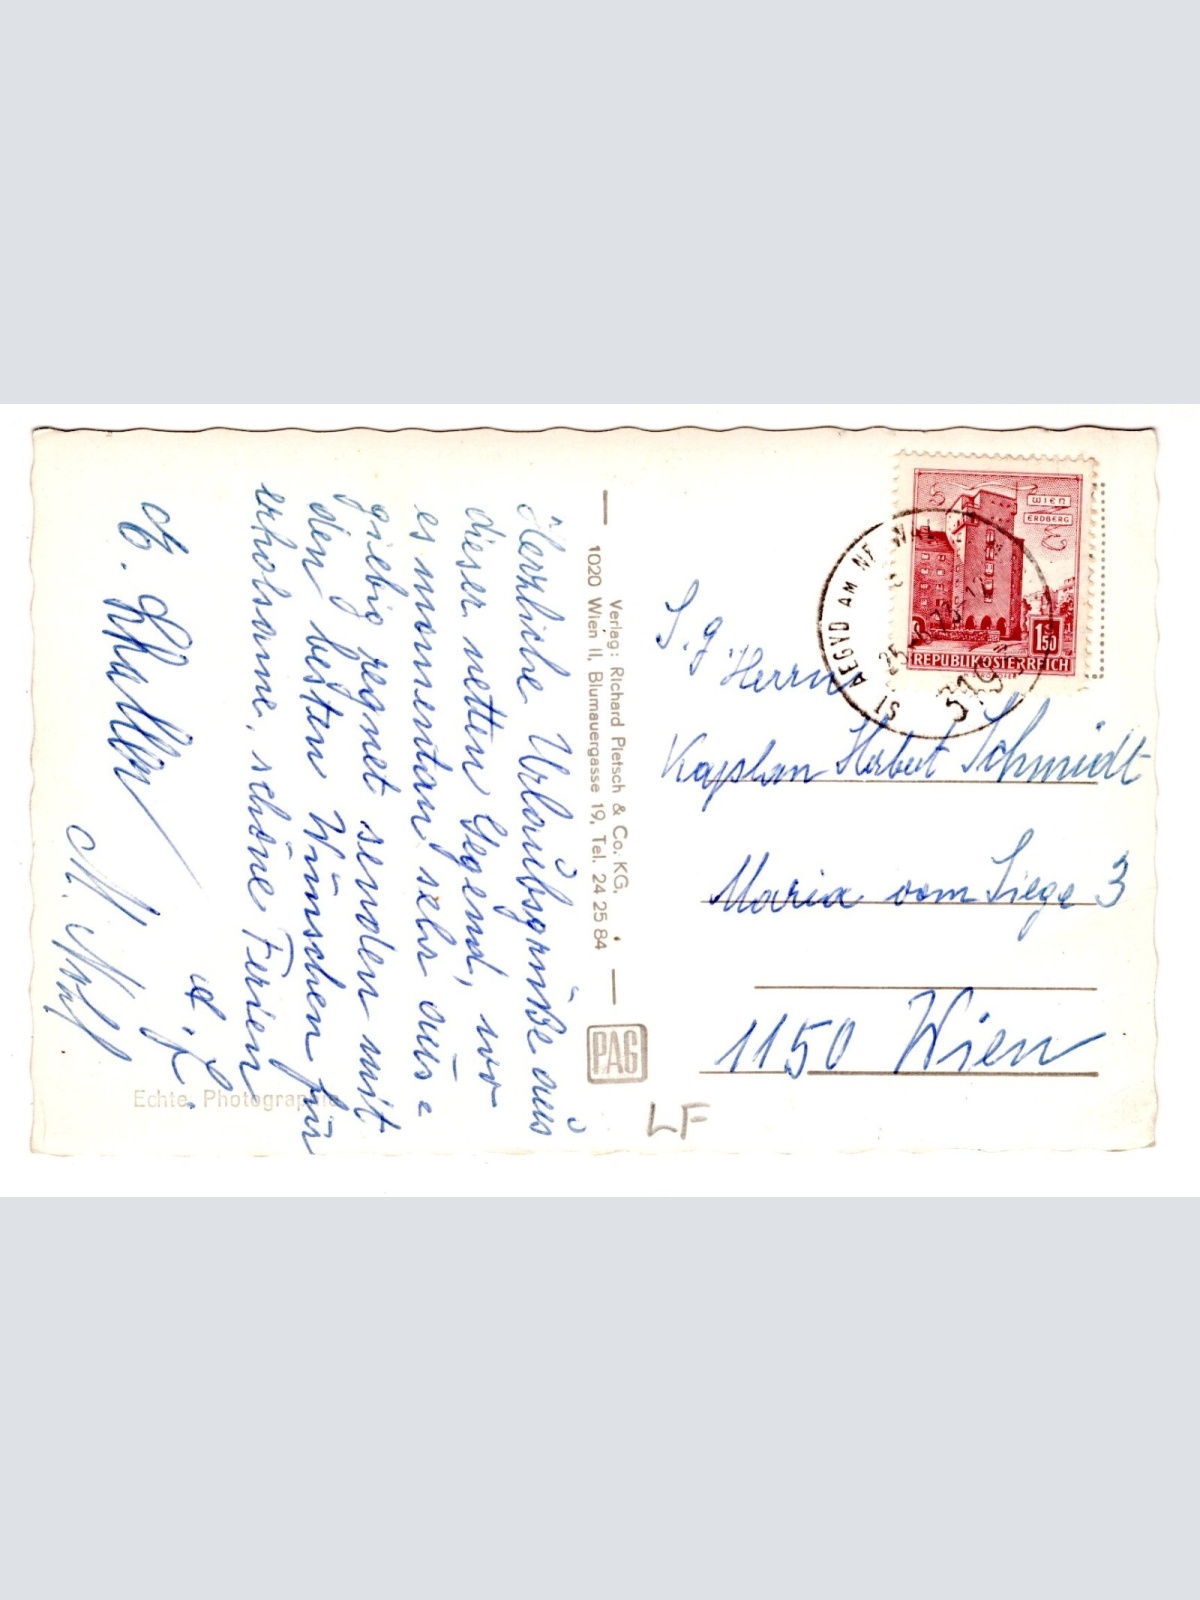 Herzliche Urlaubsgrüße aus
dieser netten Gegend, wo
es momentan sehr aus=
giebig regnet senden mit
den besten Wünschen für
erholsame, schöne Ferien
1020 Wien II, Blumauergasse 19, Tel. 24 25 84
Verlag: Richard Pietsch & Co. KG.
PAG
Echte Photographie
LF
WIEN
ERDBERG
1.50
REPUBLIK ÖSTERREICH
ST. AEGYD AM NEUWALDE
3193
S. g. Herrn
Kaplan Herbert Schmidt
Maria vom Siege 3
1150 Wien